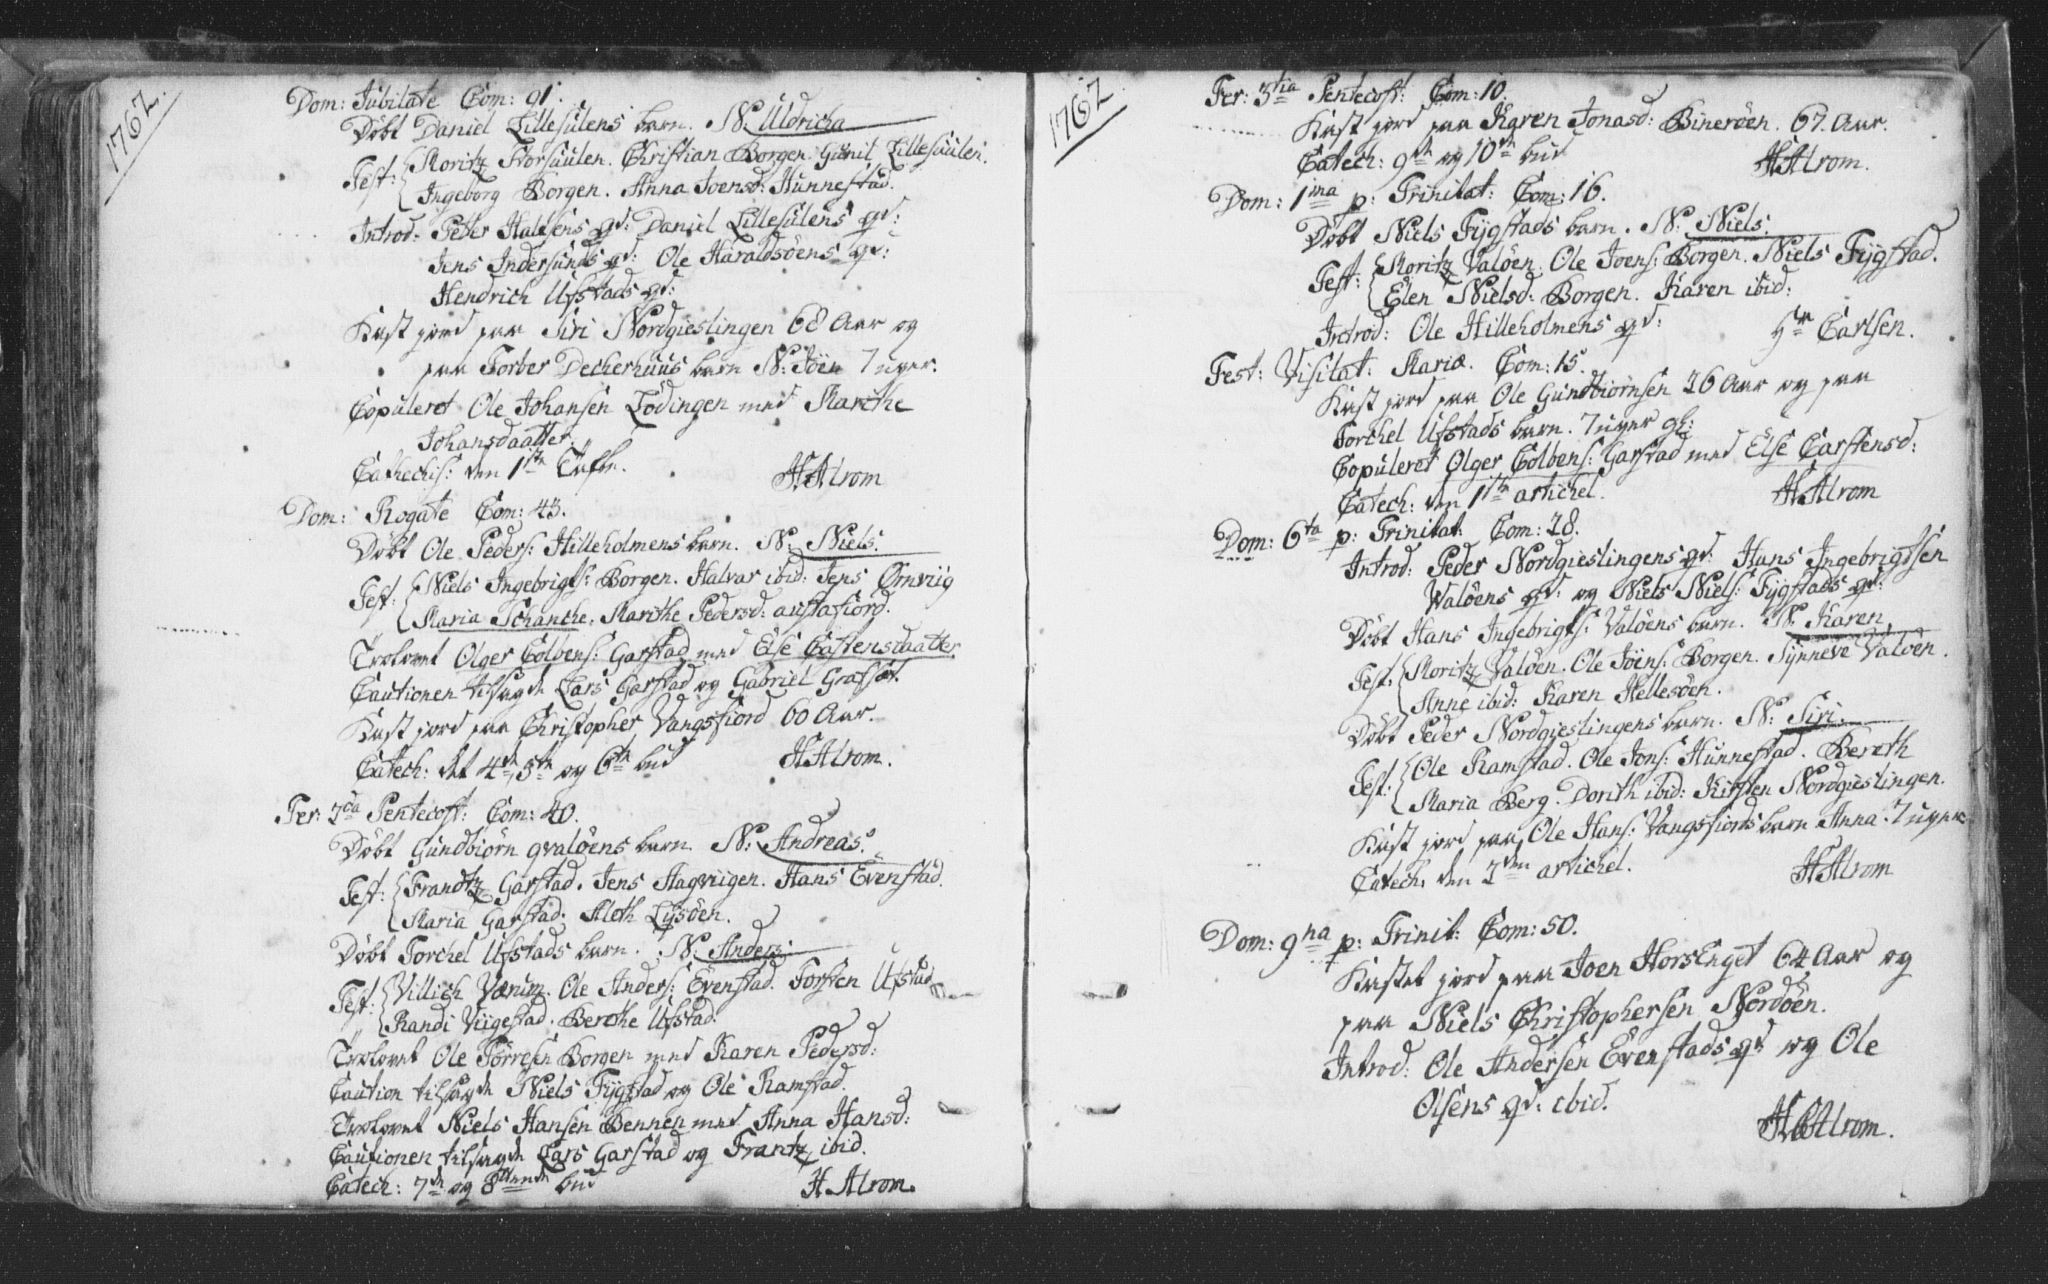 1762.
Dom: Jubilate Com: 91.
Døbt Daniel Lillesulens barn. N: Uldricha
Test: Moritz Storsuulen. Christian Borgen. Gunil Lillesuulen.
Ingeborg Borgen. Anna Joensd: Hunnestad.
Introd: Peter Halesens qd: Daniel Lillesulens qd:
Jens Indersunds qd: Ole Haraldsöens qd:
Hendrich Ufstads qd:
Kast jord paa Siri Nordgieslingen 68 Aar og
paa Torber Decherhuus barn N: Joen 7 uger.
Copuleret Ole Johansen Lödingen med Marithe
Johansdaatter.
Cathechis: den 1ste Tafle.
H Alrom
Dom: Rogate Com: 43.
Døbt Ole Peders: Hilleholmens barn. N: Niels.
Test: Niels Ingebrigts: Borgen. Halvar ibid: Jens Ørnviig
Maria Schanche. Marithe Pedersd: austafiord.
Trolovet Olger Colbens: Garstad med Else Castensdaatter
Cautionen tilsagde Lars Garstad og Gabriel Grafset.
Kast jord paa Christopher Vangsfiord 60 Aar.
Catech: det 4de, 5te og 6te bud
H Alrom.
Fer: 2da Pentecost: Com: 40.
Døbt Gundbiörn qvalöens barn N: Andreas.
Test: Frandtz Garstad. Jens Hagviigen. Hans Evenstad.
Maria Garstad. Aleth Lysöen.
Døbt Torchel Ufstads barn. N: Anders.
Test: Villich Værum. Ole Anders: Evenstad. Torsten Ufstad
Randi Viigestad. Berethe Ufstad.
Trolovet Ole Törresen Borgen med Karen Pedersd:
Caution tilsagde Niels Fygstad og Ole Ramstad.
Trolovet Niels Hansen Bennen med Anna Hansd:
Cautionen tilsagde Lars Garstad og Frantz ibid.
Catech: 7de og 8tende bud
H Alrom.
1762.
Fer: 3tia Pentecost: Com: 10.
Kast jord paa Karen Jonasd: Bineröen. 67. Aar.
Catech: 9de og 10de bud
H Alrom.
Dom: 1ma p: Trinitat: Com: 16.
Døbt Niels Fygstads barn. N: Niels.
Test: Moritz Valöen. Ole Joens: Borgen. Niels Fygstad.
Elen Nielsd: Borgen. Karen ibid:
Introd: Ole Hilleholmens qd:
Hr Carlsen.
Fest: Visitat: Mariæ. Com: 15.
Kast jord paa Ole Gundbiörnsen 26 Aar og paa
Torchel Ufstads barn. 7 uger gl:
Copuleret Olger Colbens: Garstad med Else Carstensd:
Catech: den 1ste artichel.
H Alrom
Dom: 6ta p: Trinitat: Com: 28.
Introd: Peder Nordgieslingens qd: Hans Ingebrigtsen
Walöens qd: og Niels Niels: Fygstads qd:
Døbt Hans Ingebrigts: Valöens barn. N: Karen
Test: Moritz Valöen. Ole Joens: Borgen. Synneve Valöen.
Anne ibid: Karen Hellesöen.
Døbt Peder Nordgieslingens barn. N: Siri.
Test: Ole Ramstad. Ole Jons: Hunnestad. Bereth
Maria Berg. Dorith ibid: Kirsten Nordgieslingen.
Kast jord paa Ole Hans: Vangsfiords barn Anna. 7 uger
Catech. den 2den artichel.
H Alrom
Dom: 9na p: Trinit: Com: 50.
Kastet jord paa Joen HorsEnget 64 Aar og
paa Niels Christophersen Nordöen.
Introd: Ole Andersen Evenstads qd og Ole
Olsens qd: ibid.
H Alrom.